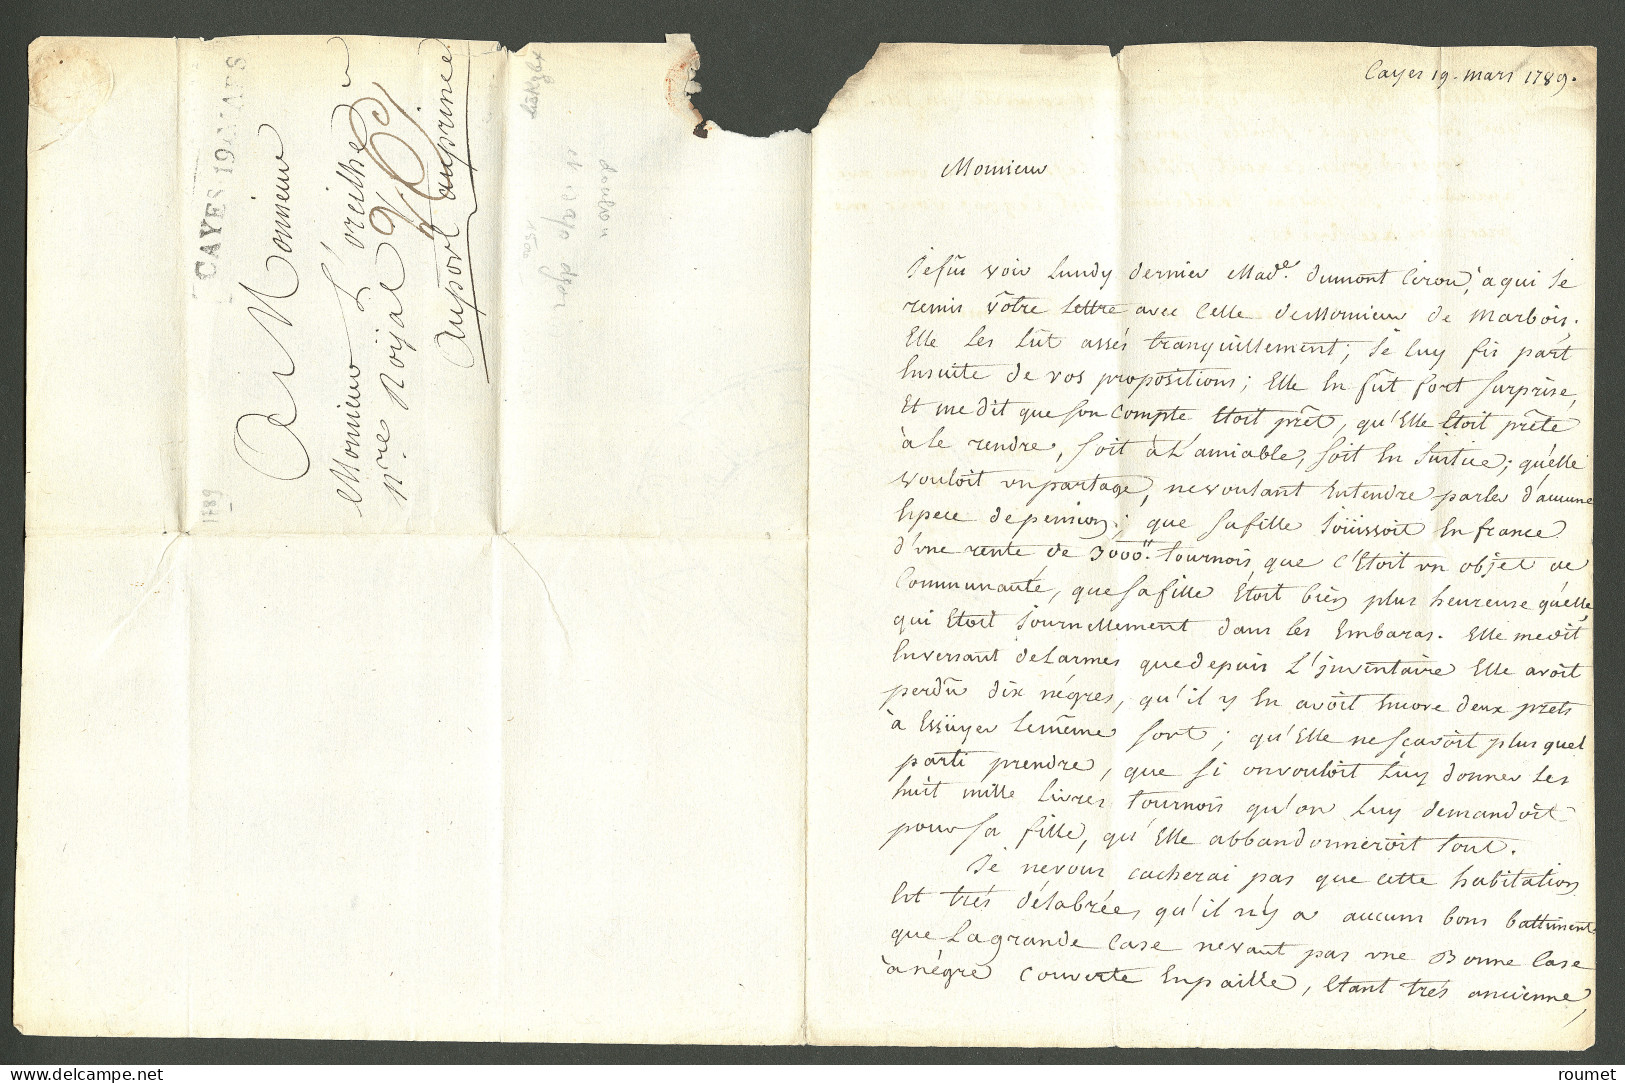 Cayes 19. mars 1789.
Monsieur
Je fûs voir Lundy dernier Mad.e Dumont Ciron, à qui Je
remis vôtre Lettre avec Celle de Monsieur de Marbois.
Elle Les Lût assés tranquillement; Je Luy fis part
Ensuite de vos propositions; Elle En fût fort Surprise,
Et me dit que Son Compte Etoit prêt, qu'Elle Etoit prête
à le rendre, Soit à L'amiable, Soit En Justice; qu'Elle
vouloit un partage, ne voulant Entendre parler d'aucune
Espece de pension; que Sa fille Joüissoit En france
d'une rente de 3000.tt tournois, que C'Etoit un objet de
Communauté, que Sa fille Etoit bien plus heureuse qu'elle
qui Etoit Journellement dans Les Embaras. Elle me dit
En versant de Larmes que depuis L'jnventaire Elle avoit
perdû dix négres, qu'il y En avoit Encore deux prets
à Essüyer Le même Sort; qu'Elle ne Sçavoit plus quel
parti prendre, que Si on vouloit Luy donner Les
huit mille Livres tournois qu'on Luy demandoit
pour Sa fille, qu'Elle abbandonneroit tout.
Je ne vous cacherai pas que cette habitation
Est trés délabrée, qu'il n'y a aucuns bons battiment
que La grande Case ne vaut pas une Bonne Case
à négre Couverte En paille, Etant trés ancienne,
CAYES 19 MARS
A Monsieur
Monsieur L'oreilhe
n.re Roÿal
Au port au prince
1789